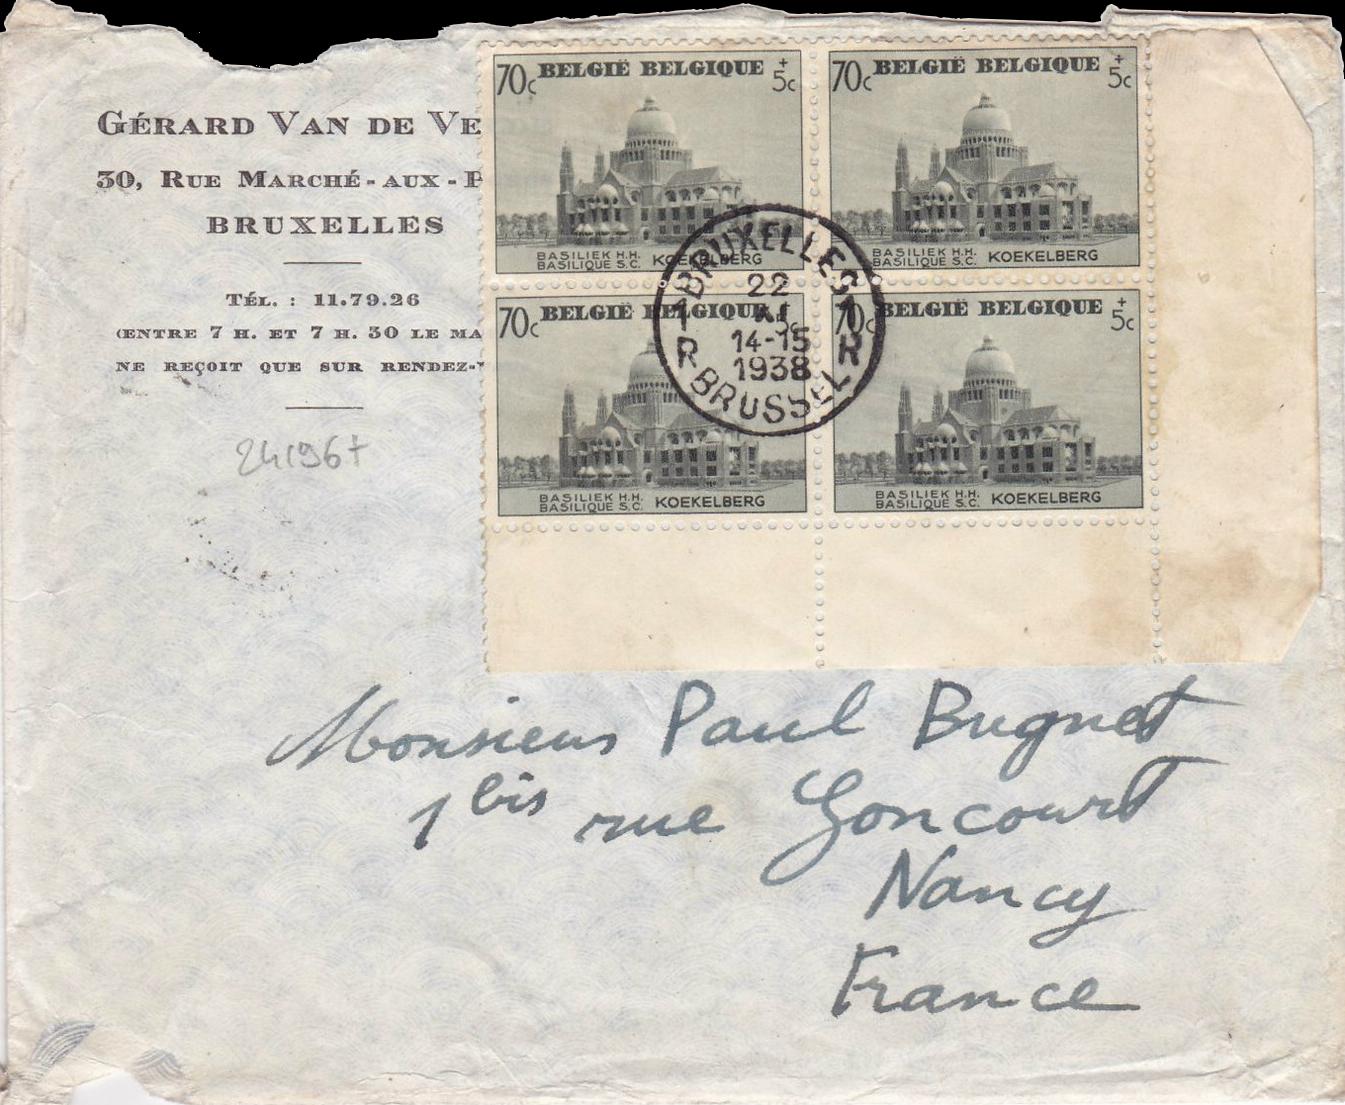 GÉRARD VAN DE VE
30, RUE MARCHÉ-AUX-P
BRUXELLES
TÉL. : 11.79.26
(ENTRE 7 H. ET 7 H. 30 LE MA
NE REÇOIT QUE SUR RENDEZ-V
241967
70c BELGIË BELGIQUE +5c
BASILIEK H.H. KOEKELBERG
BASILIQUE S.C.
70c BELGIË BELGIQUE +5c
BASILIEK H.H. KOEKELBERG
BASILIQUE S.C.
70c BELGIË BELGIQUE 5c
BASILIEK H.H. KOEKELBERG
BASILIQUE S.C.
70c BELGIË BELGIQUE +5c
BASILIEK H.H. KOEKELBERG
BASILIQUE S.C.
BRUXELLES 1
22
XI
14-15
1938
1 R R
BRUSSEL
Monsieur Paul Bugnet
1 bis rue Goncourt
Nancy
France